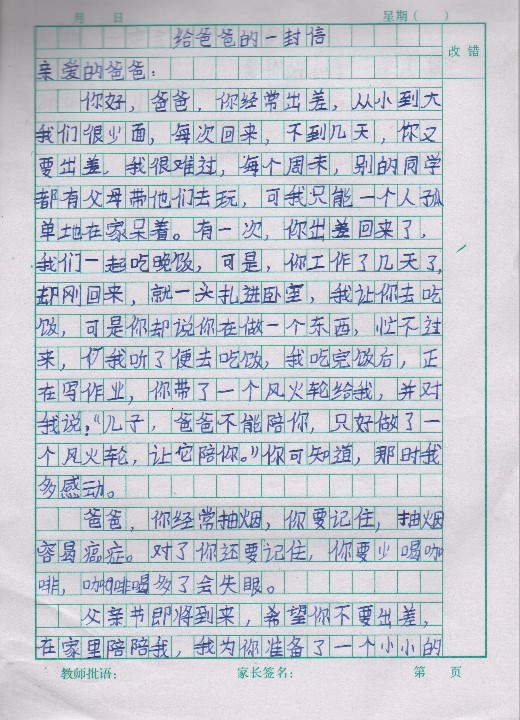 月 日 星期( )
给爸爸的一封信
改 错
亲爱的爸爸：
你好，爸爸，你经常出差，从小到大
我们很少面，每次回来，不到几天，你又
要出差，我很难过，每个周末，别的同学
都有父母带他们去玩，可我只能一个人孤
单地在家呆着。有一次，你出差回来了，
我们一起吃晚饭，可是，你工作了几天了，
却刚回来，就一头扎进卧室，我让你去吃
饭，可是你却说你在做一个东西，忙不过
来，我听了便去吃饭，我吃完饭后，正
在写作业，你带了一个风火轮给我，并对
我说：“儿子，爸爸不能陪你，只好做了一
个风火轮，让它陪你。”你可知道，那时我
多感动。
爸爸，你经常抽烟，你要记住，抽烟
容易癌症。对了你还要记住，你要少喝咖
啡，咖啡喝多了会失眠。
父亲节即将到来，希望你不要出差，
在家里陪陪我，我为你准备了一个小小的
教师批语： 家长签名： 第 页